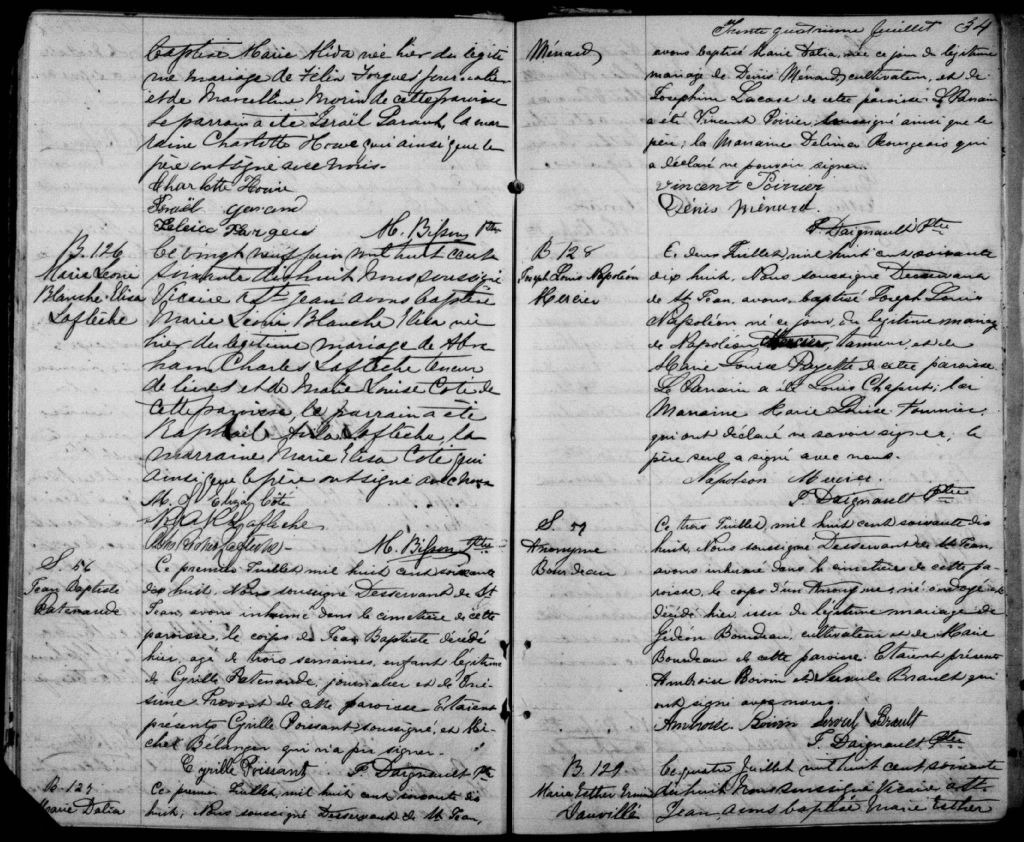 baptisé Marie Alida née hier du légiti
me mariage de Félix Forgues journalier
et de Marcelline Morin de cette paroisse
Le parrain a été Israël Parant, la mar
raine Charlotte Howe qui ainsi que le
père ont signé avec nous.
Charlotte Howe
Israël
M. Bisson Ptre
B. 126
Marie Léonie
Blanche Elisa
Laflèche
Ce vingt neuf juin mil huit cent
soixante dix huit Nous soussigné
Vicaire à St Jean avons baptisé
Marie Léonie Blanche Elisa née
hier du légitime mariage de Abra
ham Charles Laflèche teneur
de livres et de Marie Louise Coté de
cette paroisse le parrain a été
Raphaël Laflèche, la
marraine Marie Elisa Coté qui
ainsi que le père ont signé avec nous
M. Eliza Côté
Laflèche
M. Bisson Ptre
S. 56
Jean Baptiste
Patenaude
Ce premier Juillet mil huit cent soixante
dix huit. Nous soussigné Desservant de St
Jean, avons inhumé dans le cimetière de cette
paroisse, le corps de Jean Baptiste décédé
hier, agé de trois semaines, enfant légitime
de Cyrille Patenaude, journalier et de
Provost de cette paroisse Etaient
présents Cyrille Poissant soussigné, et Mi
chel Bélanger qui n'a pu signer.
Cyrille Poissant F. Daignault Ptre
B. 127
Marie Dalia
Ce premier Juillet mil huit cent soixante dix
huit, Nous soussigné Desservant de St Jean,
Trente quatrième feuillet 34
Ménard
avons baptisé Marie Dalia, née ce jour du légitime
mariage de Dénis Ménard, cultivateur, et de
Josephine Lacasse de cette paroisse. Le Parrain
a été Vincent Poirier soussigné ainsi que le
père; la Marraine Delima Bourgeois qui
a déclaré ne pouvoir signer.
Vincent Poirier
Dénis Ménard
F. Daignault Ptre
B 128
Joseph Louis Napoléon
Mercier
Ce deux Juillet, mil huit cent soixante
dix huit. Nous soussigné Desservant
de St Jean, avons baptisé Joseph Louis
Napoléon né ce jour, du légitime mariage
de Napoléon Mercier, et de
Marie Louise Payette de cette paroisse.
Le Parrain a été Louis Chaput; la
Marraine Marie Louise Fournier,
qui ont déclaré ne savoir signer; le
père seul a signé avec nous.
Napoléon Mercier
F. Daignault Ptre
S. 57
Anonyme
Boudreau
Ce trois Juillet, mil huit cent soixante dix
huit, Nous soussigné Desservant de St Jean,
avons inhumé dans le cimetière de cette pa-
roisse, le corps d'un Anonyme, né ondoyé et
décédé hier issu du légitime mariage de
Gédéon Boudreau, cultivateur et de Marie
Bourdeau de cette paroisse. Etaient présents
Ambroise Boivin et Servule Brault qui
ont signé avec nous.
Ambroise Boivin Servul Brault
F. Daignault Ptre
B. 129
Marie Esther
Ce quatre Juillet mil huit cent soixante
dix huit Nous soussigné Vicaire à St
Jean avons baptisé Marie Esther